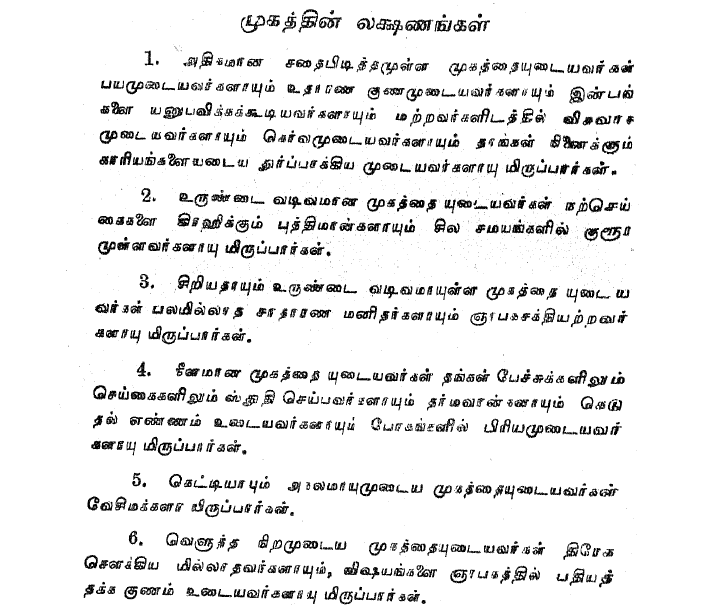 முகத்தின் லக்ஷணங்கள்
1. அதிகமான சதைபிடித்தமுள்ள முகத்தையுடையவர்கள்
பயமுடையவர்களாயும் உதாரண குணமுடையவர்களாயும் இன்பங்
களை யனுபவிக்கக்கூடியவர்களாயும் மற்றவர்களிடத்தில் விசுவாச
முடையவர்களாயும் கெர்வமுடையவர்களாயும் தாங்கள் நினைக்கும்
காரியங்களையடைய துர்ப்பாக்கிய முடையவர்களாயு மிருப்பார்கள்.
2. உருண்டை வடிவமான முகத்தை யுடையவர்கள் நற்செய்
கைகளை கிரஹிக்கும் புத்திமான்களாயும் சில சமயங்களில் குரூர
முள்ளவர்களாயு மிருப்பார்கள்.
3. சிறியதாயும் உருண்டை வடிவமாயுள்ள முகத்தை யுடைய
வர்கள் பலமில்லாத சாதாரண மனிதர்களாயும் ஞாபகசக்தியற்றவர்
களாயு மிருப்பார்கள்.
4. நீளமான முகத்தை யுடையவர்கள் தங்கள் பேச்சுக்களிலும்
செய்கைகளிலும் ஸ்துதி செய்பவர்களாயும் தர்மவான்களாயும் கெடு
தல் எண்ணம் உடையவர்களாயும் போகங்களில் பிரியமுடையவர்
களாயு மிருப்பார்கள்.
5. கெட்டியாயும் அகலமாயுமுடைய முகத்தையுடையவர்கள்
வேசிமக்களா யிருப்பார்கள்.
6. வெளுத்த நிறமுடைய முகத்தையுடையவர்கள் திரேக
சௌக்கிய மில்லாதவர்களாயும், விஷயங்களை ஞாபகத்தில் பதியத்
தக்க குணம் உடையவர்களாயு மிருப்பார்கள்.